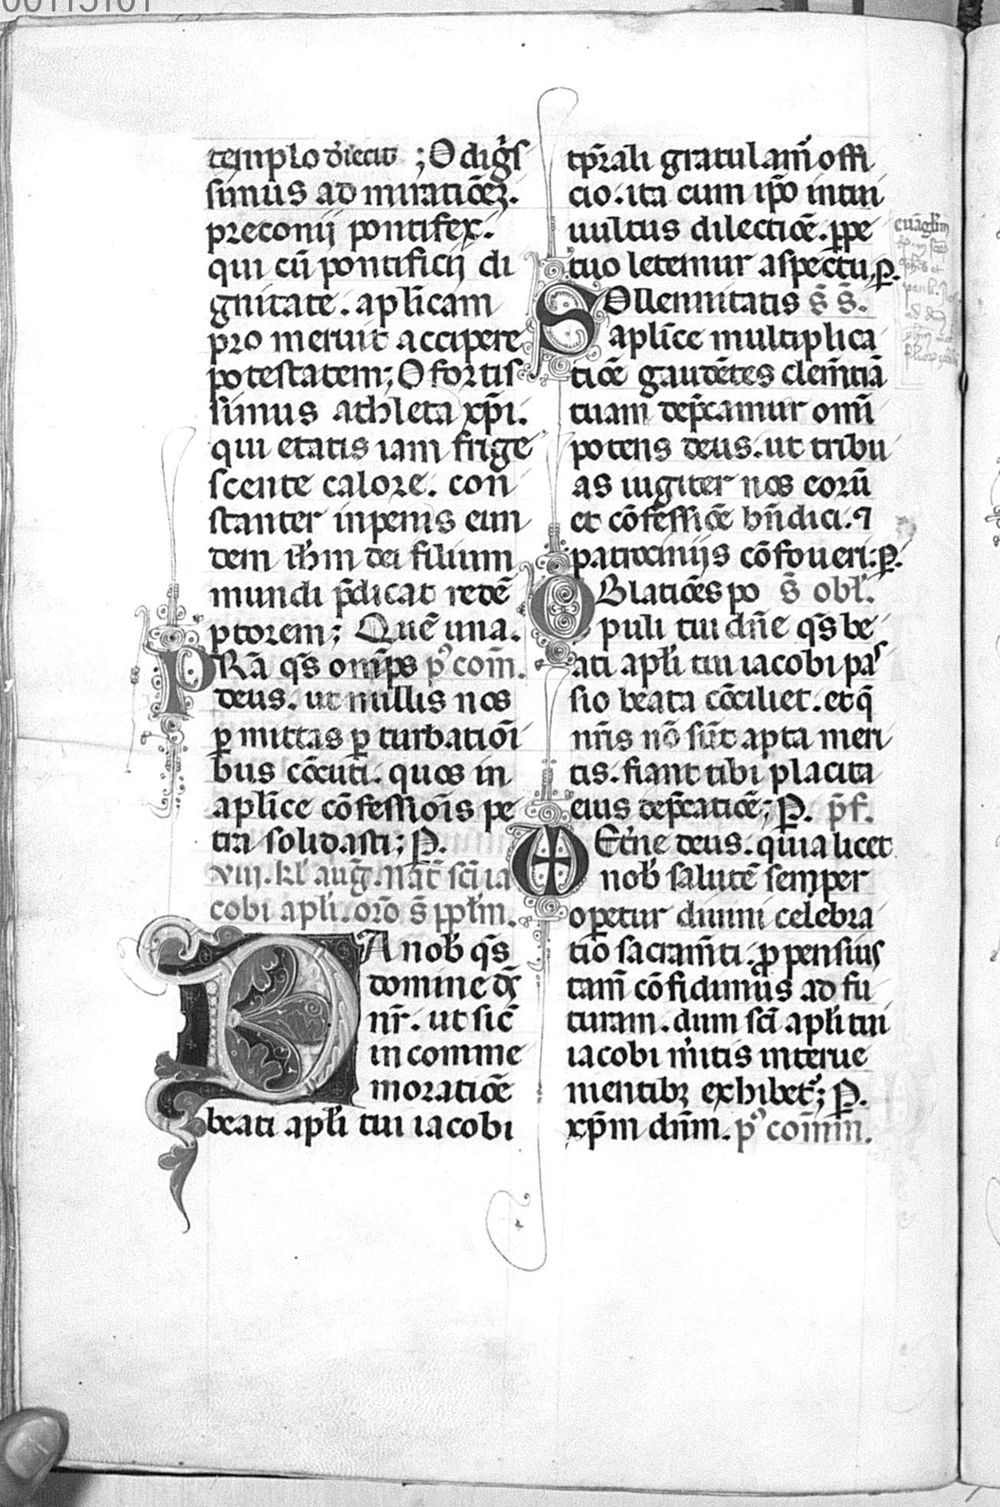 templo diiecit ; O digs̄
simus admiratiōeꝫ.
preconij pontifex.
qui cū pontificij di
gnitate. aplicam
pro meruit accipere
potestatem; O fortis
simus athleta xp̄i.
qui etatis iam frige
scente calore. con
stanter inpenis eun
dem ih̄m dei filium
mundi p̄dicat redē
ptorem; Quē una.
PRā qs̄ omīps pꝰ com̄.
deus. ut nullis nos
ꝑmittas ꝑturbatiōi
bus cōcuti. quos in
aplīce cōfessiōis pe
tra solidasti; P.
viii. kl' auḡ. nat̄ sc̄i ia
cobi apl̄i. orō s̄ pplm̄.
DA nob' qs̄
domine ds̄
nr̄. ut sic̄
in comme
moratiōe
beati apl̄i tui iacobi
tp̄rali gratulam̄ offi
cio. ita cum ip̄o intui
uultus dilectiōe. ꝑpe
tuo letemur aspectu. P.
SOllennitatis s̄ s̄.
aplīce multiplica
tiōe gaudētes clem̄tiā
tuam dep̄camur om̄i
potens deus. ut tribu
as iugiter nos eorū
et cōfessiōe bn̄dici. ⁊
patrociniis cōfoueri. P.
OBlatiōes po s̄ obl'.
puli tui dn̄e qs̄ be
ati apl̄i tui iacobi pas
sio beata cōciliet. et q̄
nr̄is nō sūt apta meri
tis. fiant tibi placita
eius dep̄catiōe; P. p̄f.
VD Et'ne deus. quia licet
nob' salutē semper
operetur diuini celebra
tio sacram̄ti. ꝓpensius
tam̄ cōfidimus ad fu
turam. dum sc̄i apl̄i tui
iacobi m̄itis interue
mentibꝫ exhibet'; P.
xp̄m dn̄m. pꝰ com̄m.
euāgl'm